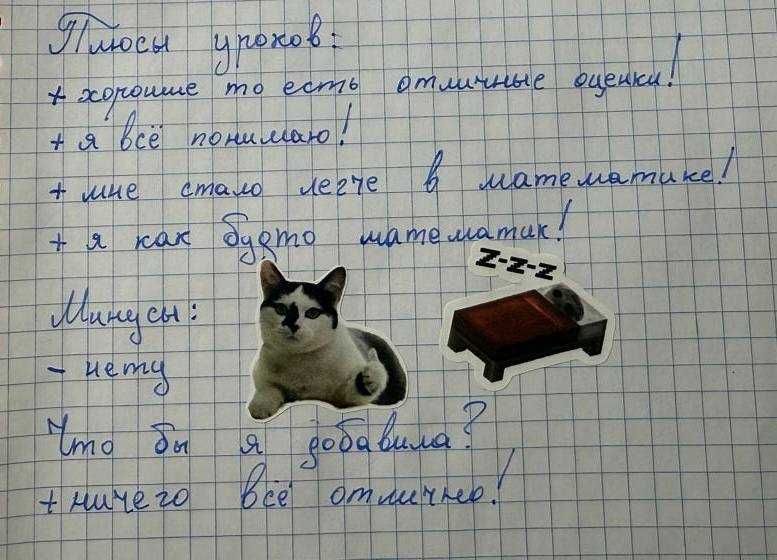 Плюсы уроков:
+ хорошие то есть отличные оценки!
+ я всё понимаю!
+ мне стало легче в математике!
+ я как будто математик!
Z-Z-Z
Минусы:
- нету
Что бы я добавила?
+ ничего всё отлично!